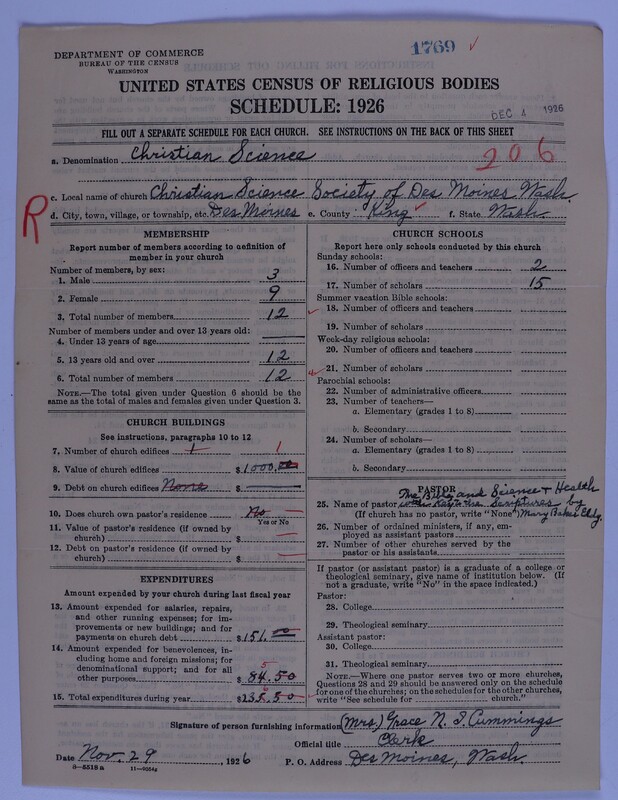 1769 ✓
DEPARTMENT OF COMMERCE
BUREAU OF THE CENSUS
WASHINGTON
UNITED STATES CENSUS OF RELIGIOUS BODIES
SCHEDULE: 1926
DEC 4 1926
FILL OUT A SEPARATE SCHEDULE FOR EACH CHURCH. SEE INSTRUCTIONS ON THE BACK OF THIS SHEET
a. Denomination Christian Science
206
R
c. Local name of church Christian Science Society of Des Moines Wash.
d. City, town, village, or township, etc. Des Moines e. County King ✓ f. State Wash
MEMBERSHIP
Report number of members according to definition of
member in your church
Number of members, by sex:
1. Male 3
2. Female 9
3. Total number of members 12
Number of members under and over 13 years old:
4. Under 13 years of age
5. 13 years old and over 12
6. Total number of members 12
NOTE.—The total given under Question 6 should be
same as the total of males and females given under Question 3.
CHURCH BUILDINGS
See instructions, paragraphs 10 to 12
7. Number of church edifices 1 1
8. Value of church edifices $1000.00
9. Debt on church edifices None $
10. Does church own pastor's residence No
Yes or No
11. Value of pastor's residence (if owned by
church) $
12. Debt on pastor's residence (if owned by
church) $
EXPENDITURES
Amount expended by your church during last fiscal year
13. Amount expended for salaries, repairs,
and other running expenses; for im-
provements or new buildings; and for
payments on church debt $151.00
14. Amount expended for benevolences,
including home and foreign missions; for
denominational support; and for all
other purposes $84.50
5
15. Total expenditures during year $235.50
CHURCH SCHOOLS
Report here only schools conducted by this church
Sunday schools:
16. Number of officers and teachers 2
17. Number of scholars 15
Summer vacation Bible schools:
18. Number of officers and teachers
19. Number of scholars
Week-day religious schools:
20. Number of officers and teachers
21. Number of scholars
Parochial schools:
22. Number of administrative officers
23. Number of teachers—
a. Elementary (grades 1 to 8)
b. Secondary
24. Number of scholars—
a. Elementary (grades 1 to 8)
b. Secondary
PASTOR
The Bible and Science & Health
25. Name of pastor with Key to the Scriptures by
(If church has no pastor, write "None") Mary Baker Eddy.
26. Number of ordained ministers, if any, em-
ployed as assistant pastors
27. Number of other churches served by the
pastor or his assistants
If pastor (or assistant pastor) is a graduate of a college or
theological seminary, give name of institution below. (If
not a graduate, write "No" in the space indicated.)
Pastor:
28. College
29. Theological seminary
Assistant pastor:
30. College
31. Theological seminary
NOTE.—Where one pastor serves two or more churches,
Questions 28 and 29 should be answered only on the schedule
for one of the churches; on the schedules for the other churches,
write "See schedule for church."
Signature of person furnishing information (Mrs.) Grace N. S. Cummings
Official title Clerk
Date Nov. 29, 1926 P. O. Address Des Moines, Wash.
8—5518 a 11—9054g